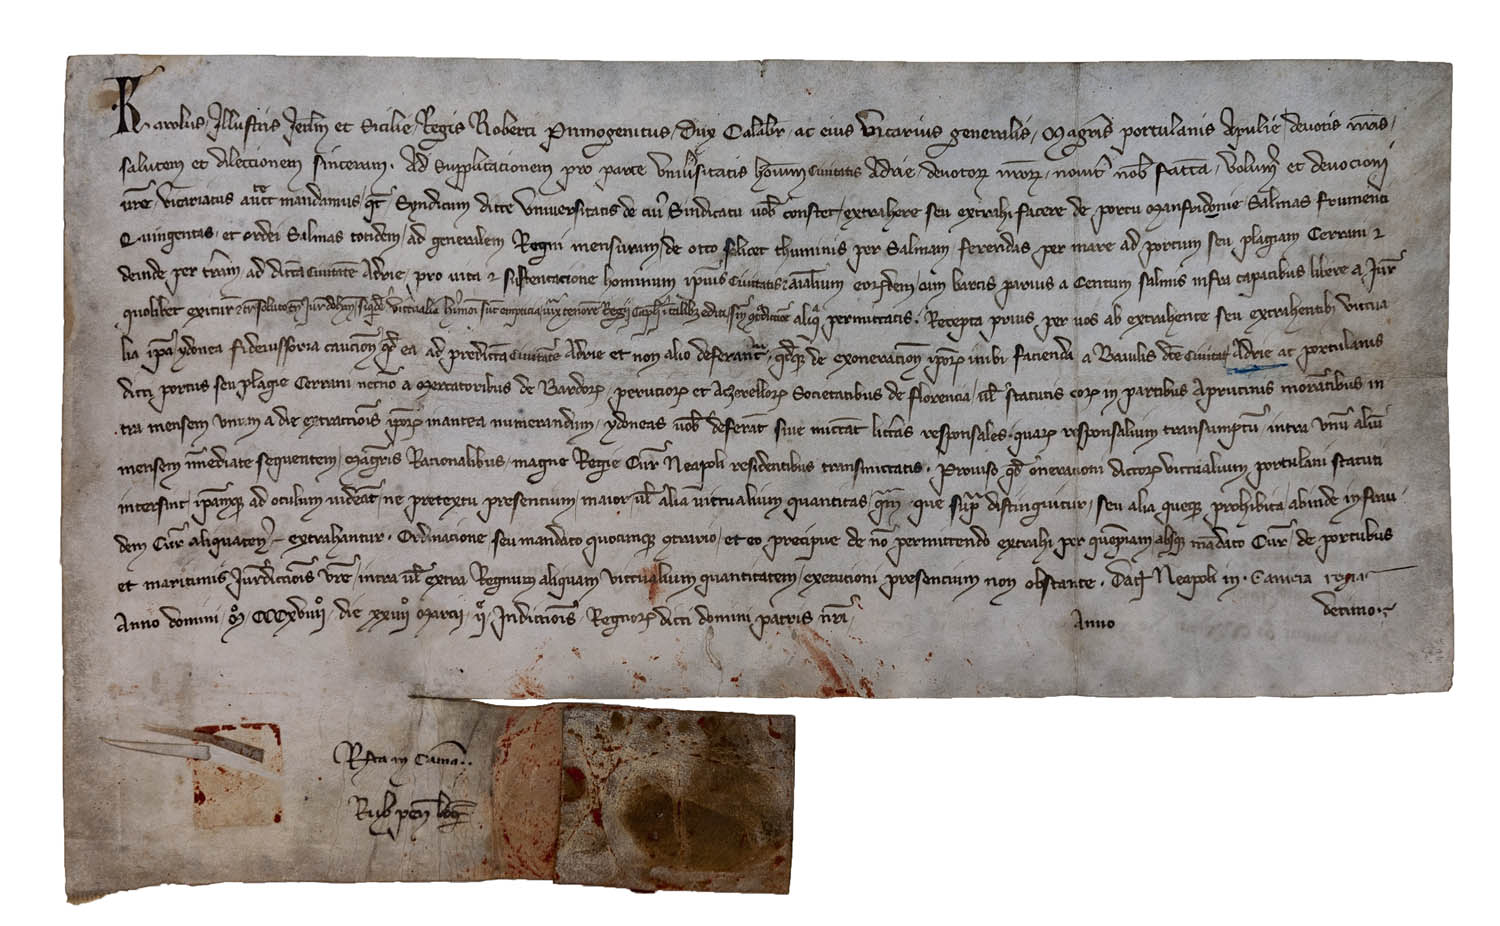 Karolus, Illustris Jerlm et Sicilie, Regis Roberti Primogenitus, Dux Calabr, ac eius Vicarius generalis, Magris portulanis Apulie, devotis nris,
salutem et dilectionem sinceram. Ad Supplicacionem pro parte Univsitatis hominum Civitatis Adrie, devotor nror, novit nob factam, volum et devocioni
vre, vicariatus auct mandamus, qt Syndicum dicte Universitatis de cui Sindicatu vob constet, extrahere seu extrahi facere de portu Manfridonie, Salmas frumenti
Quingentas, et ordei Salmas totidem, ad generalem Regni mensuram, de octo scilicet thuminis per Salmam, ferendas per mare ad portum seu plagiam Cerrani et
deinde per tram ad dictam Civitate Adrie, pro victu et sustentacione hominum ipius Civitatis et aialium eorundem, cum barcis parvis a Centum salmis infra capacibus libere a Jure
quolibet exiture permittatis. Recepta prius per vos ab extrahente seu extrahentib victua
lia ipa ydonea fideiussoria caucione qd ea ad predictam Civitate Adrie et non alio deferant, qdque de exoneracion ipor inibi facienda a Baiulis dce Civitat Adrie ac portulanis
dicti portus seu plagie Cerrani necno a Mercatoribus de Bardor, peruccior et Acherellor Societatibus de florencia, ul statutis eor in partibus Aprutinis morantibus in
tra mensem unum a die extractiois ipor in antea numerandum, ydoneas vob deferat sive mictat licteras responsales, quar responsalium transumptu, intra unu aliu
mensem imediate sequentem, Magris Racionalibus, magne Regie Cur Neapoli residentibus transmictatis. Proviso qd oneracioni dictor victualium portulani statuti
intersint, ipamque ad oculum videat, ne pretextu presentium, maior, ul alia victualium quantitas, qm, que supra distinguitur, seu alia queque prohibita, abinde in frau
dem Cur aliquaten extrahantur. Ordinacione, seu mandato quocumque contrario, et eo precipue de no permittendo extrahi per quempiam absque mandato Cur, de portubus
et maritimis Jurdictiois vre, intra ul extra Regnum aliquam victualium quantitatem, execucioni presentium non obstante. Dat Neapoli in Camera regia
Anno domini, Mo CCCxviiii, die xxiiii Marcii, ije Indictiois, Regnor dicti domini patris nri, Anno decimo.
Rta in Cama.